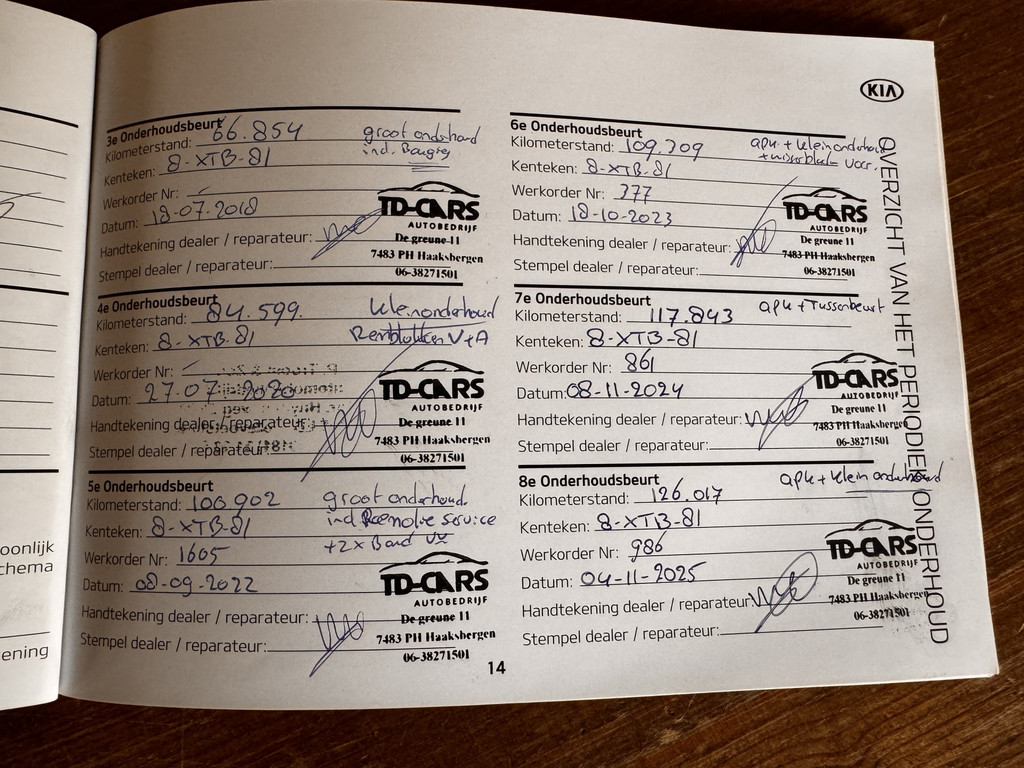 KIA
OVERZICHT VAN HET PERIODIEK ONDERHOUD
3e Onderhoudsbeurt
Kilometerstand: 66.854
groot onderhoud
incl. Bougies
Kenteken: 8-XTB-81
Werkorder Nr:
Datum: 18-07-2018
Handtekening dealer / reparateur:
Stempel dealer / reparateur:
TD-CARS
AUTOBEDRIJF
De greune 11
7483 PH Haaksbergen
06-38271501
4e Onderhoudsbeurt
Kilometerstand: 84.599.
kleinonderhoud
Remblokken V+A
Kenteken: 8-XTB-81
Werkorder Nr:
Datum: 27-07-2020
Handtekening dealer / reparateur:
Stempel dealer / reparateur:
TD-CARS
AUTOBEDRIJF
De greune 11
7483 PH Haaksbergen
06-38271501
5e Onderhoudsbeurt
Kilometerstand: 100.902
groot onderhoud
incl Remolie service
+2x Band
Kenteken: 8-XTB-81
Werkorder Nr: 1605
Datum: 08-09-2022
Handtekening dealer / reparateur:
Stempel dealer / reparateur:
TD-CARS
AUTOBEDRIJF
De greune 11
7483 PH Haaksbergen
06-38271501
6e Onderhoudsbeurt
Kilometerstand: 109.709
apk + kleinonderhoud
Kenteken: 8-XTB-81
Werkorder Nr: 377
Datum: 18-10-2023
Handtekening dealer / reparateur:
Stempel dealer / reparateur:
TD-CARS
AUTOBEDRIJF
De greune 11
7483 PH Haaksbergen
06-38271501
7e Onderhoudsbeurt
Kilometerstand: 117.843
apk + Tussenbeurt
Kenteken: 8-XTB-81
Werkorder Nr: 861
Datum: 08-11-2024
Handtekening dealer / reparateur:
Stempel dealer / reparateur:
TD-CARS
AUTOBEDRIJF
De greune 11
7483 PH Haaksbergen
06-38271501
8e Onderhoudsbeurt
Kilometerstand: 126.017
apk + klein onderhoud
Kenteken: 8-XTB-81
Werkorder Nr: 986
Datum: 04-11-2025
Handtekening dealer / reparateur:
Stempel dealer / reparateur:
TD-CARS
AUTOBEDRIJF
De greune 11
7483 PH Haaksbergen
06-38271501
14
oonlijk
chema
ening